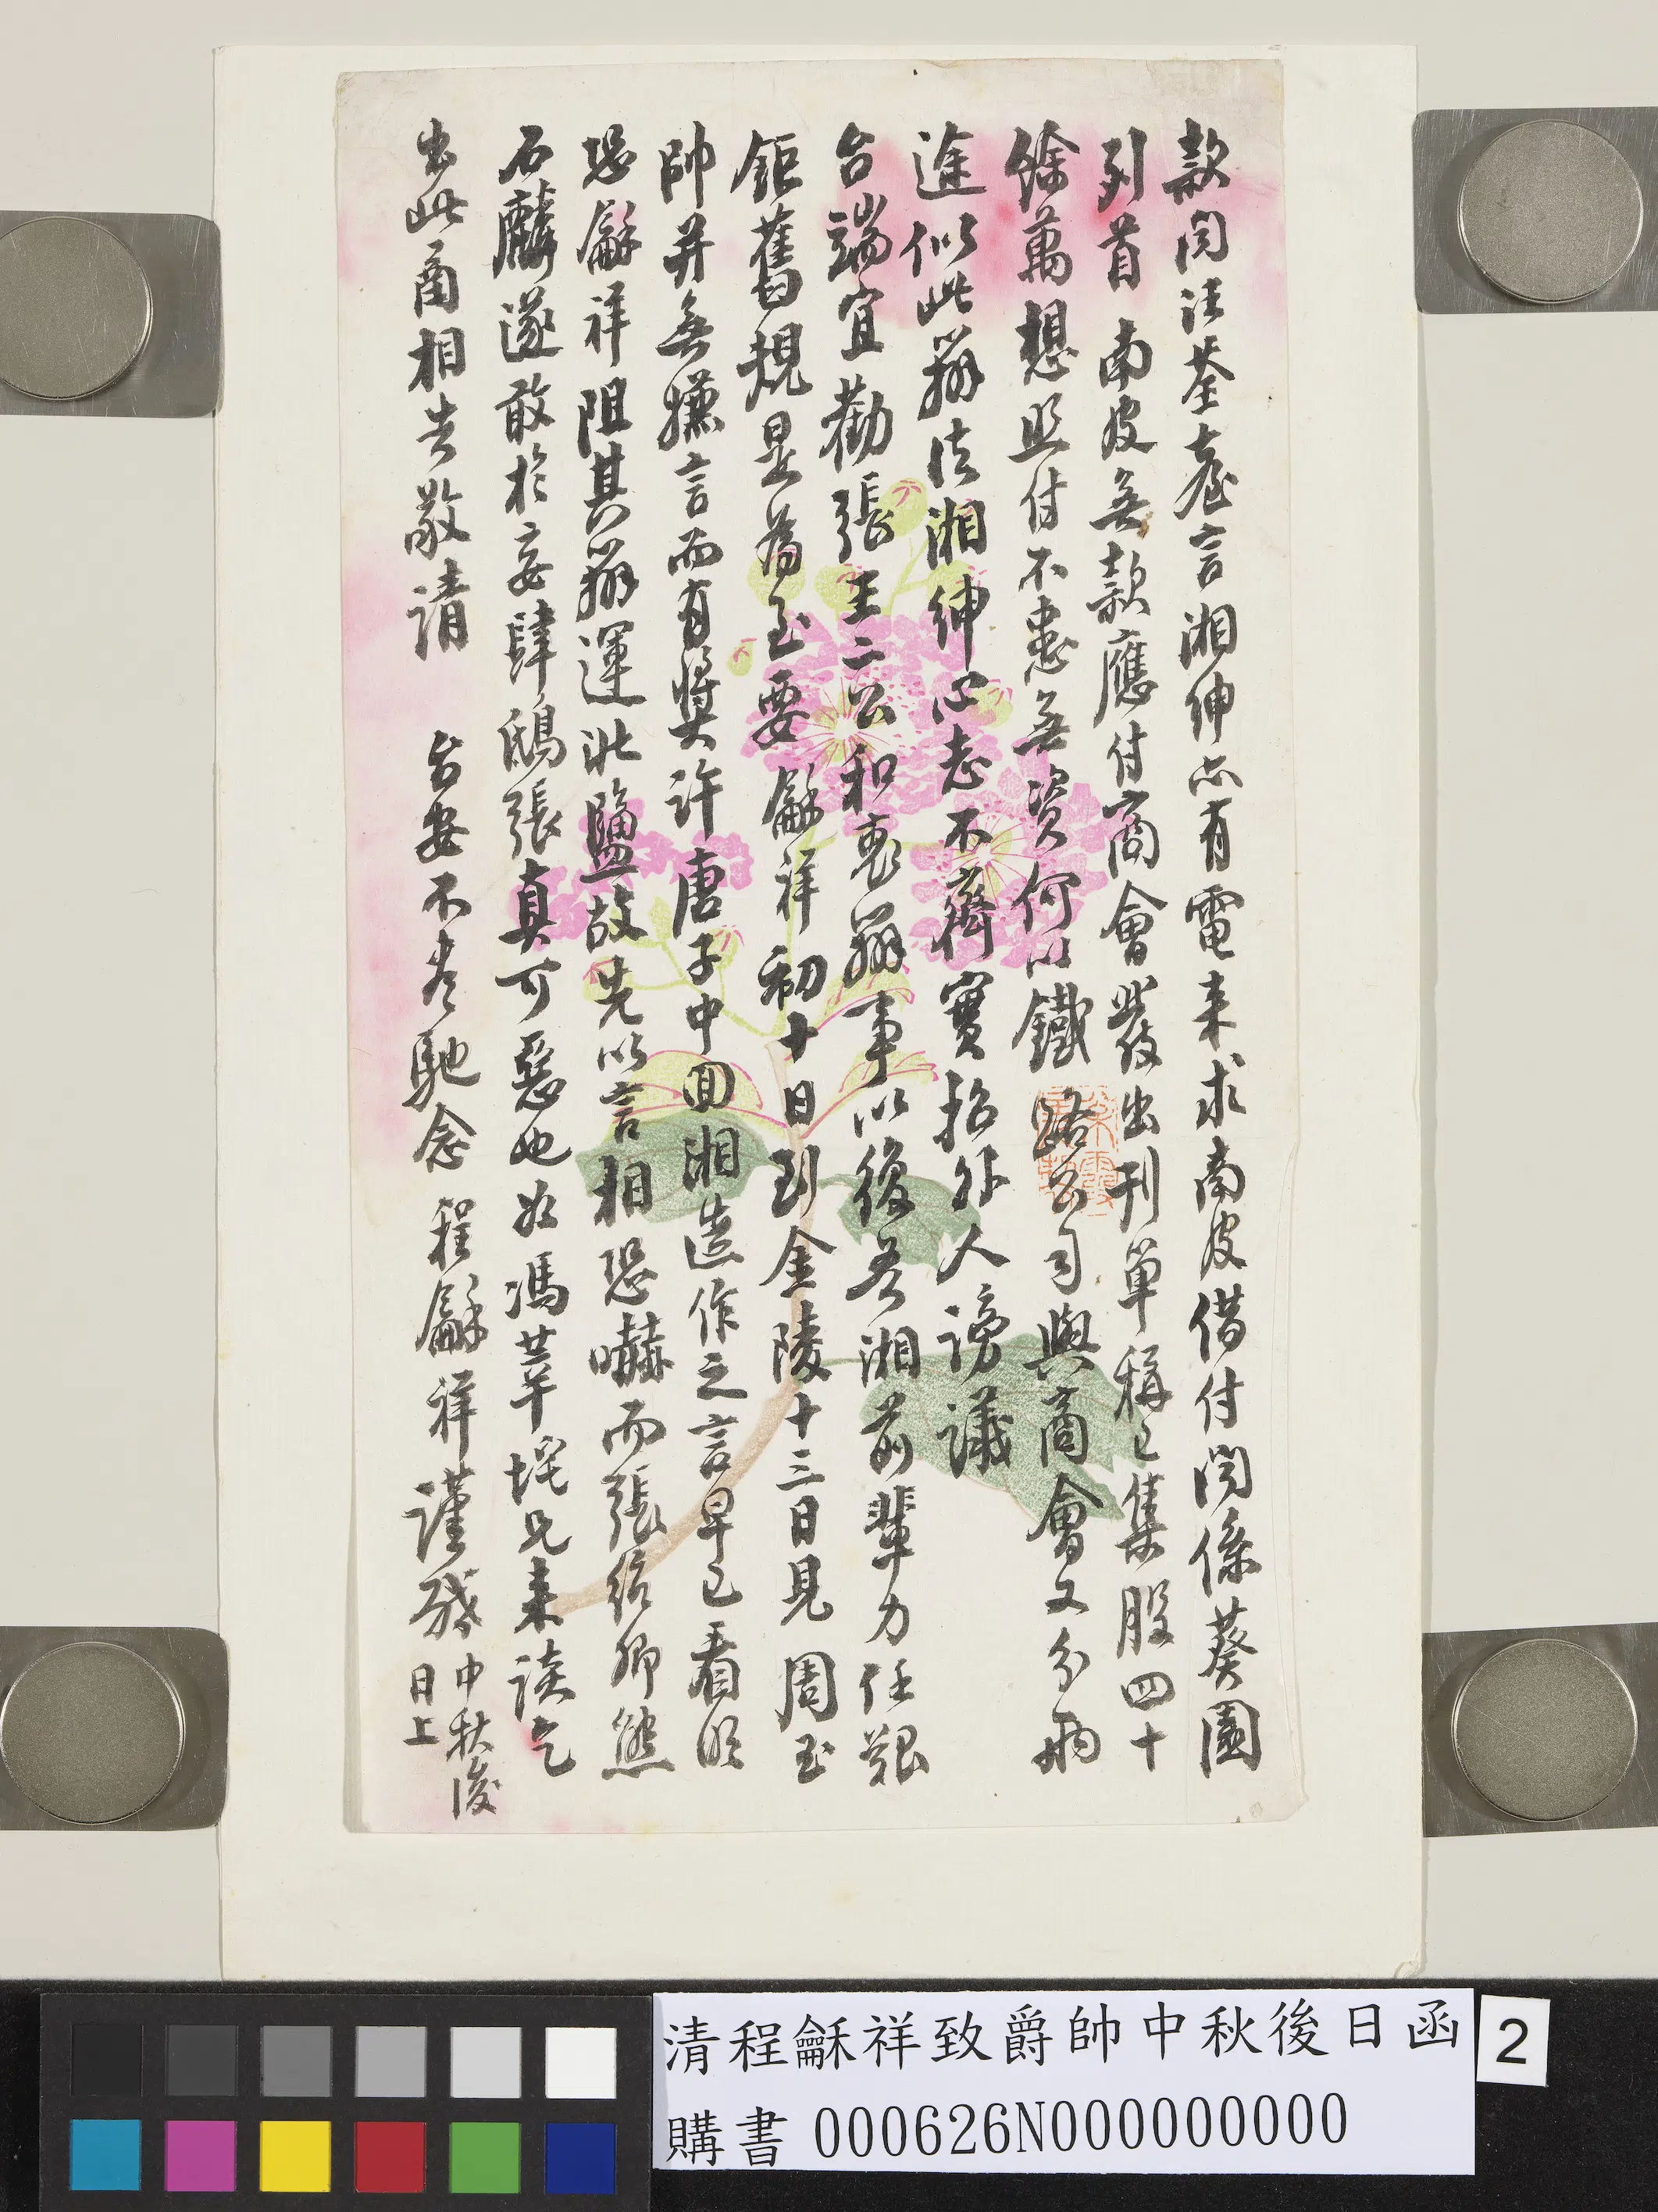 款聞汪荃臺言湘紳亦有電來求南皮借付關係葵園
列首南皮無款應付商會裝出刊單稱已集股四十
餘萬想照付不患無資何以鐵路公司與商會又分兩
途似此辦法湘紳心志不齊實招外人謗議
台端宜勸張王二公和衷辦事以後若湘前輩力任艱
鉅舊規是為至要龢祥初十日到金陵十三日見周玉
帥并無撫言而有獎許唐子中回湘造作之言早已看明
恐龢祥阻其辦運北鹽故先以言相恐嚇而張紹卿熊
石麟遂敢於妄肆鴟張真可惡也如馮莘垞兄來談乞
出此函相告敬請　台安不盡馳念　程龢祥謹啟
中秋後
日上
清程龢祥致爵帥中秋後日函
2
購書 000626N000000000